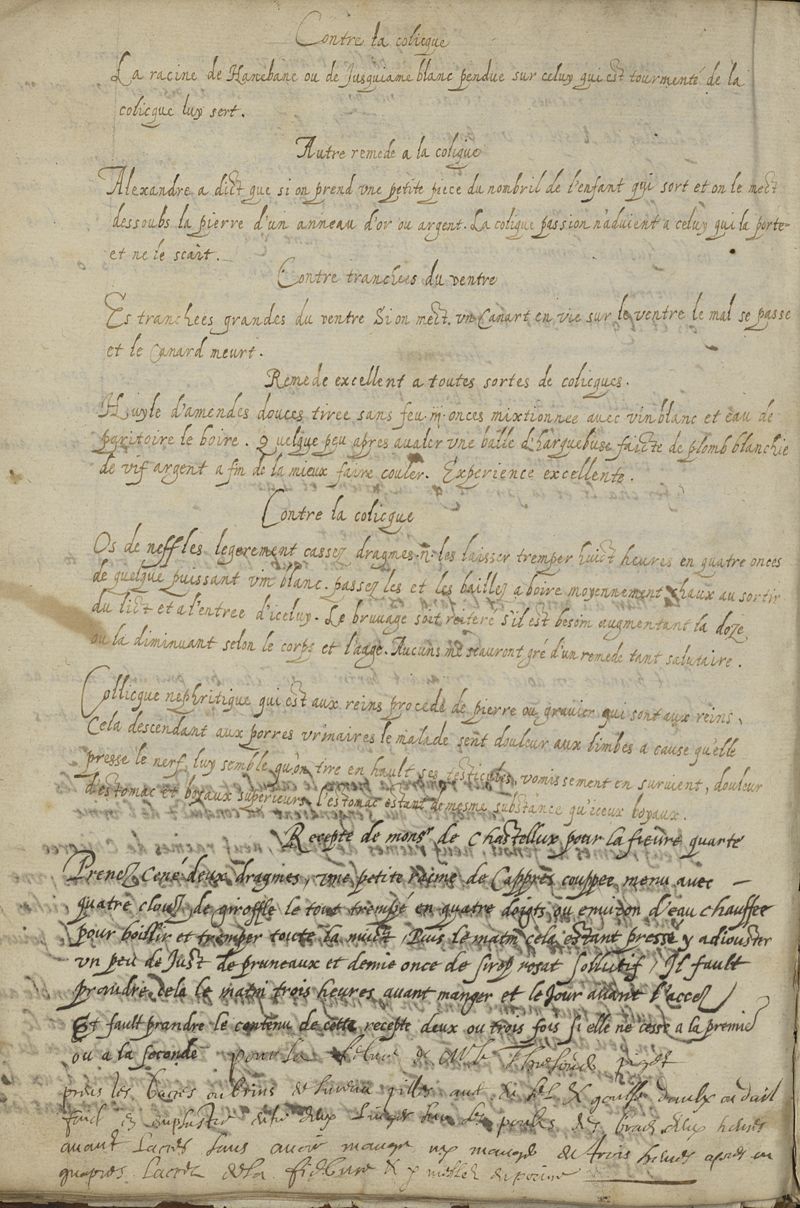 Contre la colicque
La racine de Hanebane ou de Jusquiame blanc pendue sur celuy qui est tourmenté de la
colicque luy sert.
Autre remede a la colique
Alexandre a dict que si on prend vne petite piece du nombril de l'enfant qui sort et on le mect
dessoubs la pierre d'un anneau d'or ou argent. La colique passion n'aduient a celuy qui la porte
et ne le scait.
Contre tranchees du ventre
Es tranchees grandes du ventre Si on mect vn Canart en vie sur le ventre le mal se passe
et le Canard meurt.
Remede excellent a toutes sortes de colicques.
Huyle d'amendes douces tiree sans feu .iij. onces mixtionnee auec vin blanc et eau de
paritoire le boire. Quelque peu apres aualer vne balle d'harquebuse faicte de plomb blanchie
de vif argent afin de la mieux faire couler. Experience excellente.
Contre la colicque
Os de neffles legerement cassez dragmes .ii. les laisser tremper huict heures en quatre onces
de quelque puissant vin blanc. passez les et les baillez a boire moyennement chaux au sortir
du lict et a l'entree d'iceluy. Le bruuage soit reitere s'il est besoin augmentant la doze
ou la diminuant selon le corps et l'aage. Aucuns me scauront gré d'un remede tant salutaire.
Collicque nephritique qui est aux reins procede de pierre ou grauier qui sont aux reins,
Cela descendant aux porres vrinaires le malade sent douleur aux limbes a cause qu'elle
presse le nerf, luy semble qu'on tire en hault ses testicules, vomissement en suruient, douleur
d'estomac et boyaux superieurs l'estomac estant de mesme substance qu'iceux boyaux.
Recepte de monsr de Chastellux pour la fieure quarte
Prenez Cené deux dragmes, vne petite racine de Cappres couppee menu auec
quatre clouz de giroffle le tout trempé en quatre doigts ou enuiron d'eau chauffee
pour boillir et tremper toute la nuict, Puis le matin cela estant pressé y adiouster
vn peu de Just de pruneaux et demie once de sirop rosat sollutif, Il fault
prendre cela le matin trois heures auant manger et le Jour auant l'accez
Et fault prandre le contenu de cette recepte deux ou trois fois si elle ne cesse a la premie
ou a la seconde pour la fiebure de
prins les ou brins de aut de sel de gousse d'aulx ou d'ail
deux des poulx des bras deux heures
auant lacces sans auoir mange ny manger de trois heures apres
lacces de la fiebure